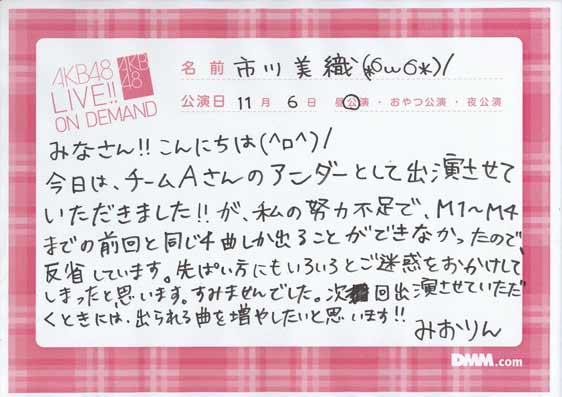 AKB48
LIVE!!
ON DEMAND
AKB
48
名前 市川美織(*6ω6*)/
公演日 11月 6日 昼公演・おやつ公演・夜公演
みなさん!!こんにちは(^ロ^)/
今日は、チームAさんのアンダーとして出演させて
いただきました!!が、私の努力不足で、M1~M4
までの前回と同じ4曲しか出ることができなかったので、
反省しています。先ぱい方にもいろいろとご迷惑をおかけして
しまったと思います。すみませんでした。次回出演させていただ
くときには、出られる曲を増やしたいと思います!!
みおりん
DMM.com